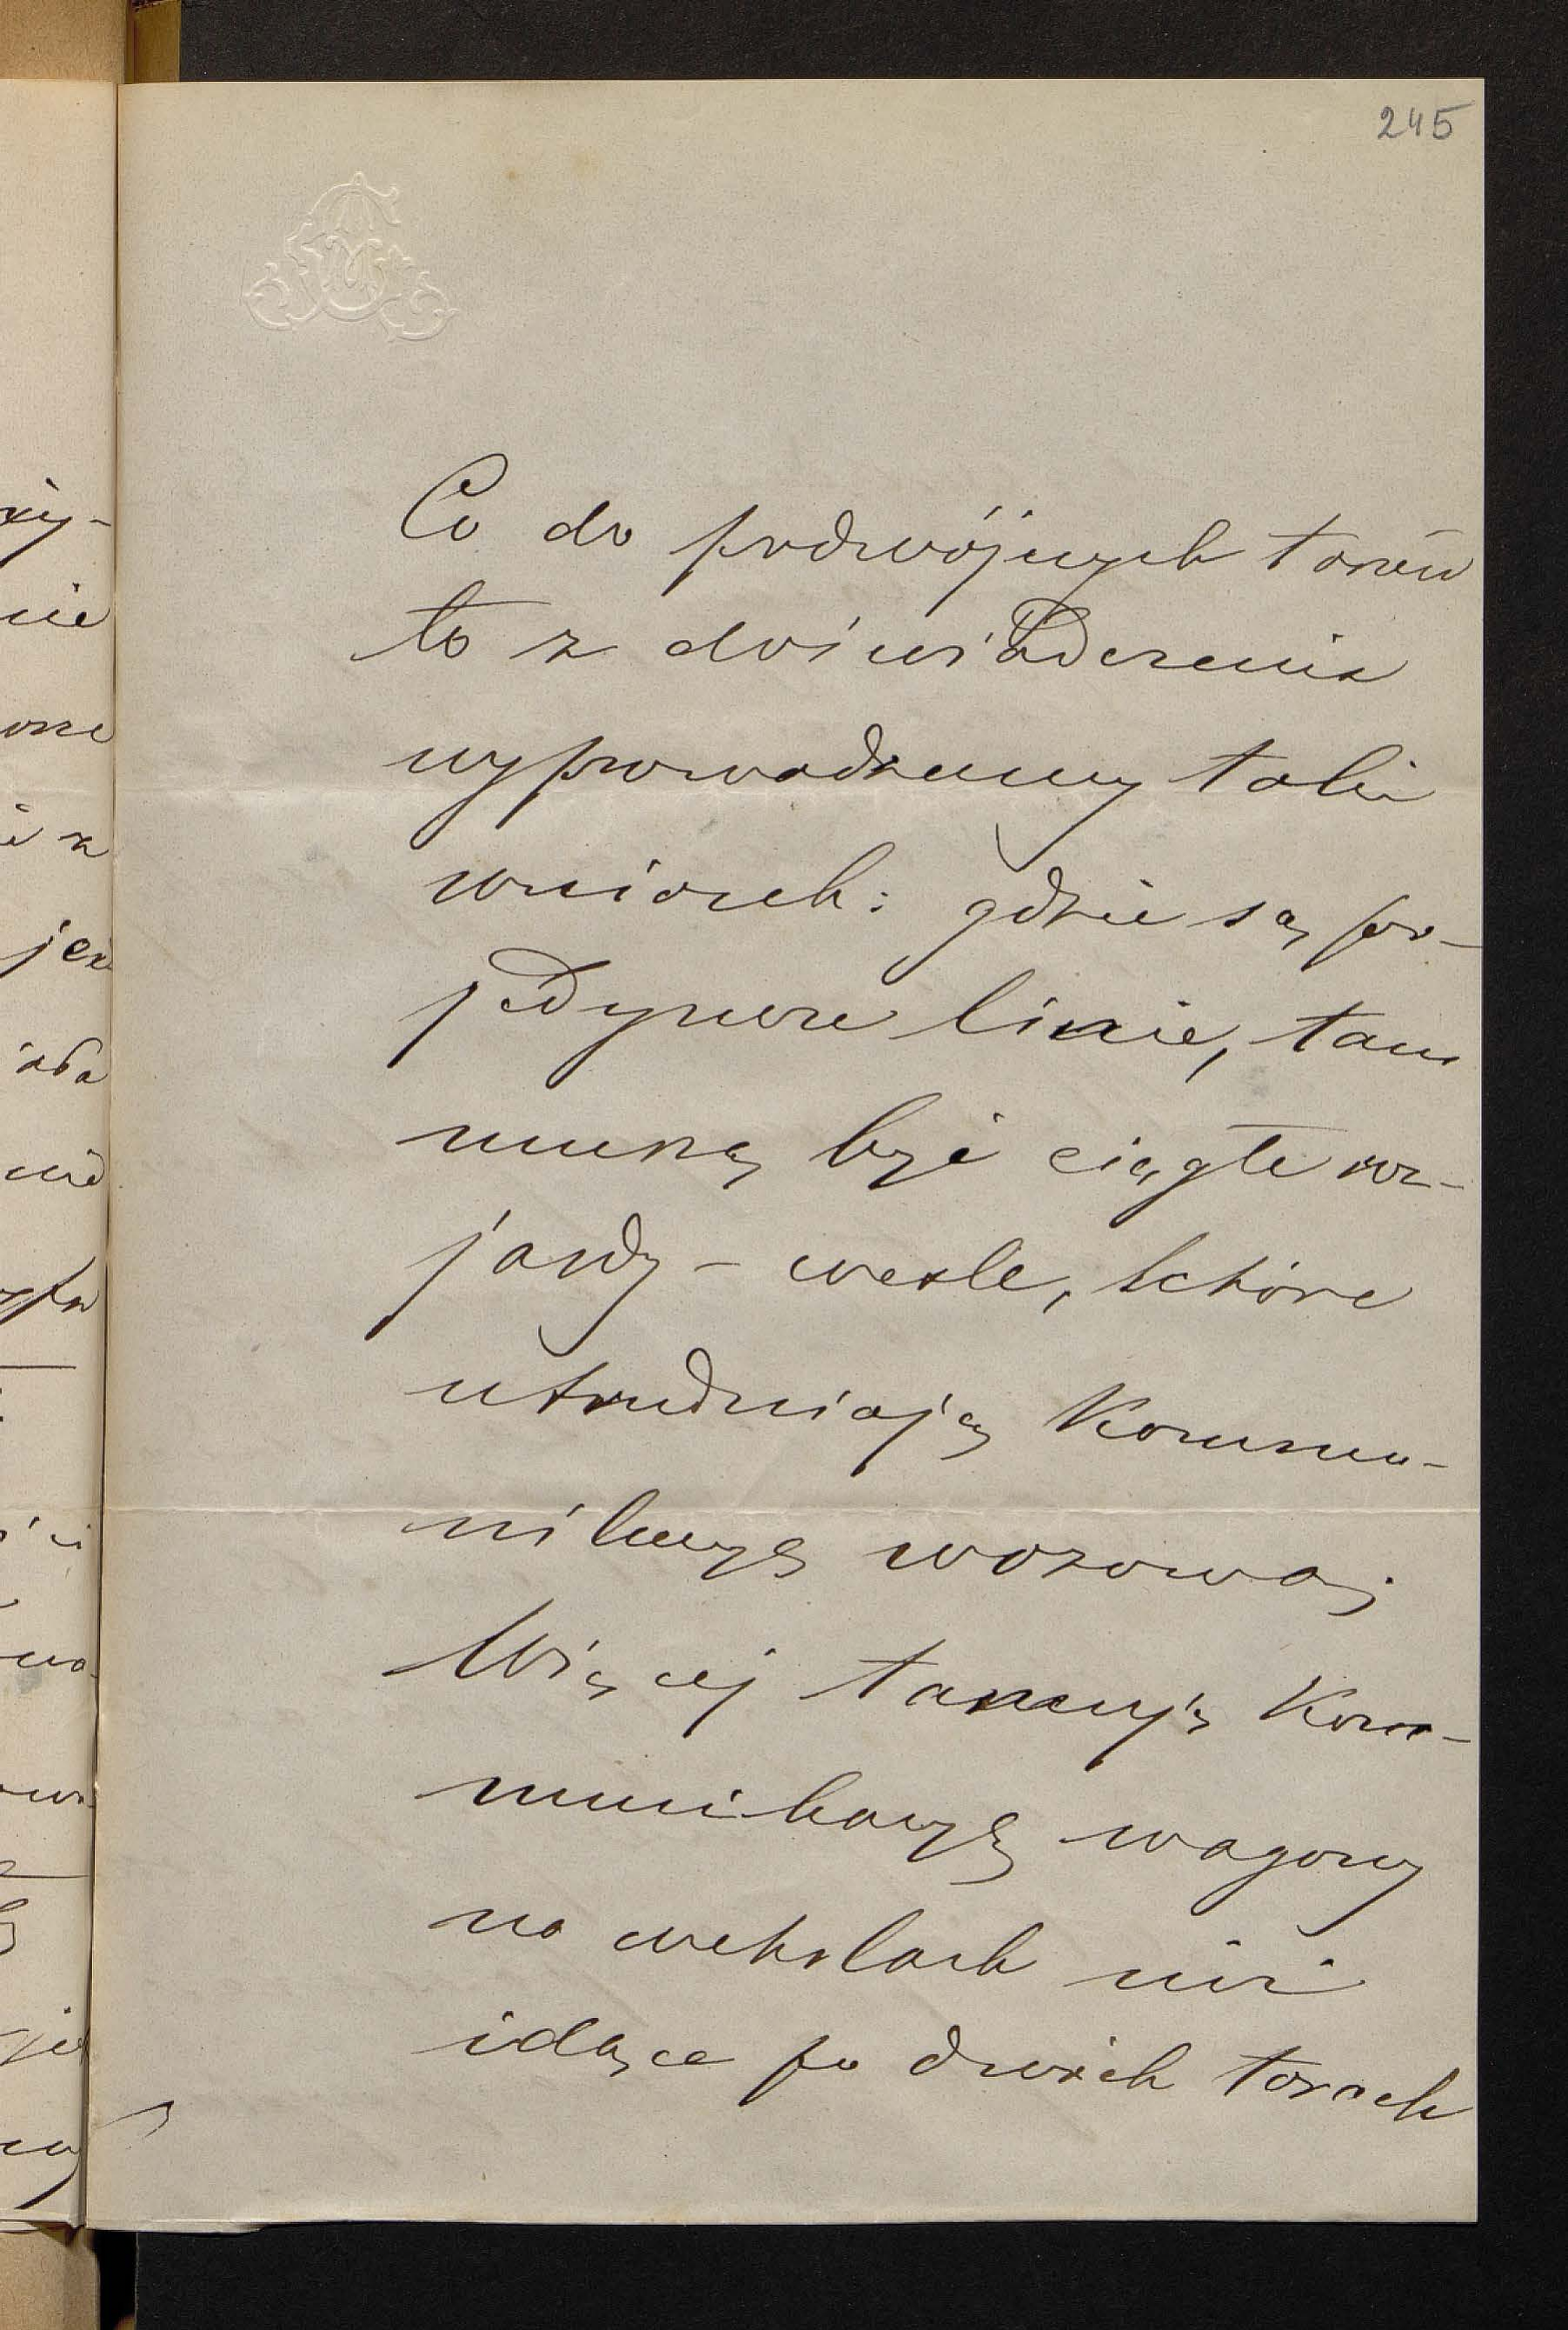 245
Co do podwójnych torów
to z doświadczenia
wyprowadzamy taki
wniosek: gdzie są po-
jedyncze linie, tam
muszą być ciągłe roz-
jazdy – wexle, które
utrudniają Kommu-
nikacyę wozową.
Więcej tamują Kom-
munikacyę wagony
na wekslach niż
idące po dwóch torach